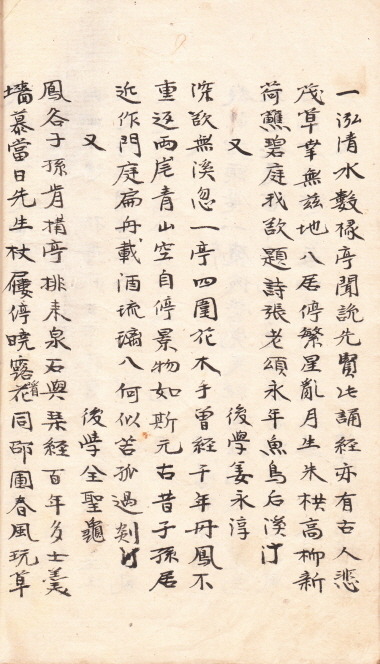 一泓清水數椽亭聞說先賢此誦經亦有古人悲
茂草幸無茲地八居停繁星亂月生朱栱高柳新
荷蘸碧庭我欲題詩張老頌永年魚鳥后溪汀
後學姜永淳
又
深欲無溪忽一亭四圍花木手曾經千年丹鳳不
重返兩崖青山空自停景物如斯元古昔子孫居
近作門庭扁舟載酒琉璃八何似苦孤過剡汀
後學全聖龜
又
鳳谷子孫肯構亭排來泉石與琹經百年多士羹
墻慕當日先生杖屨停曉露花看同邵圃春風玩草